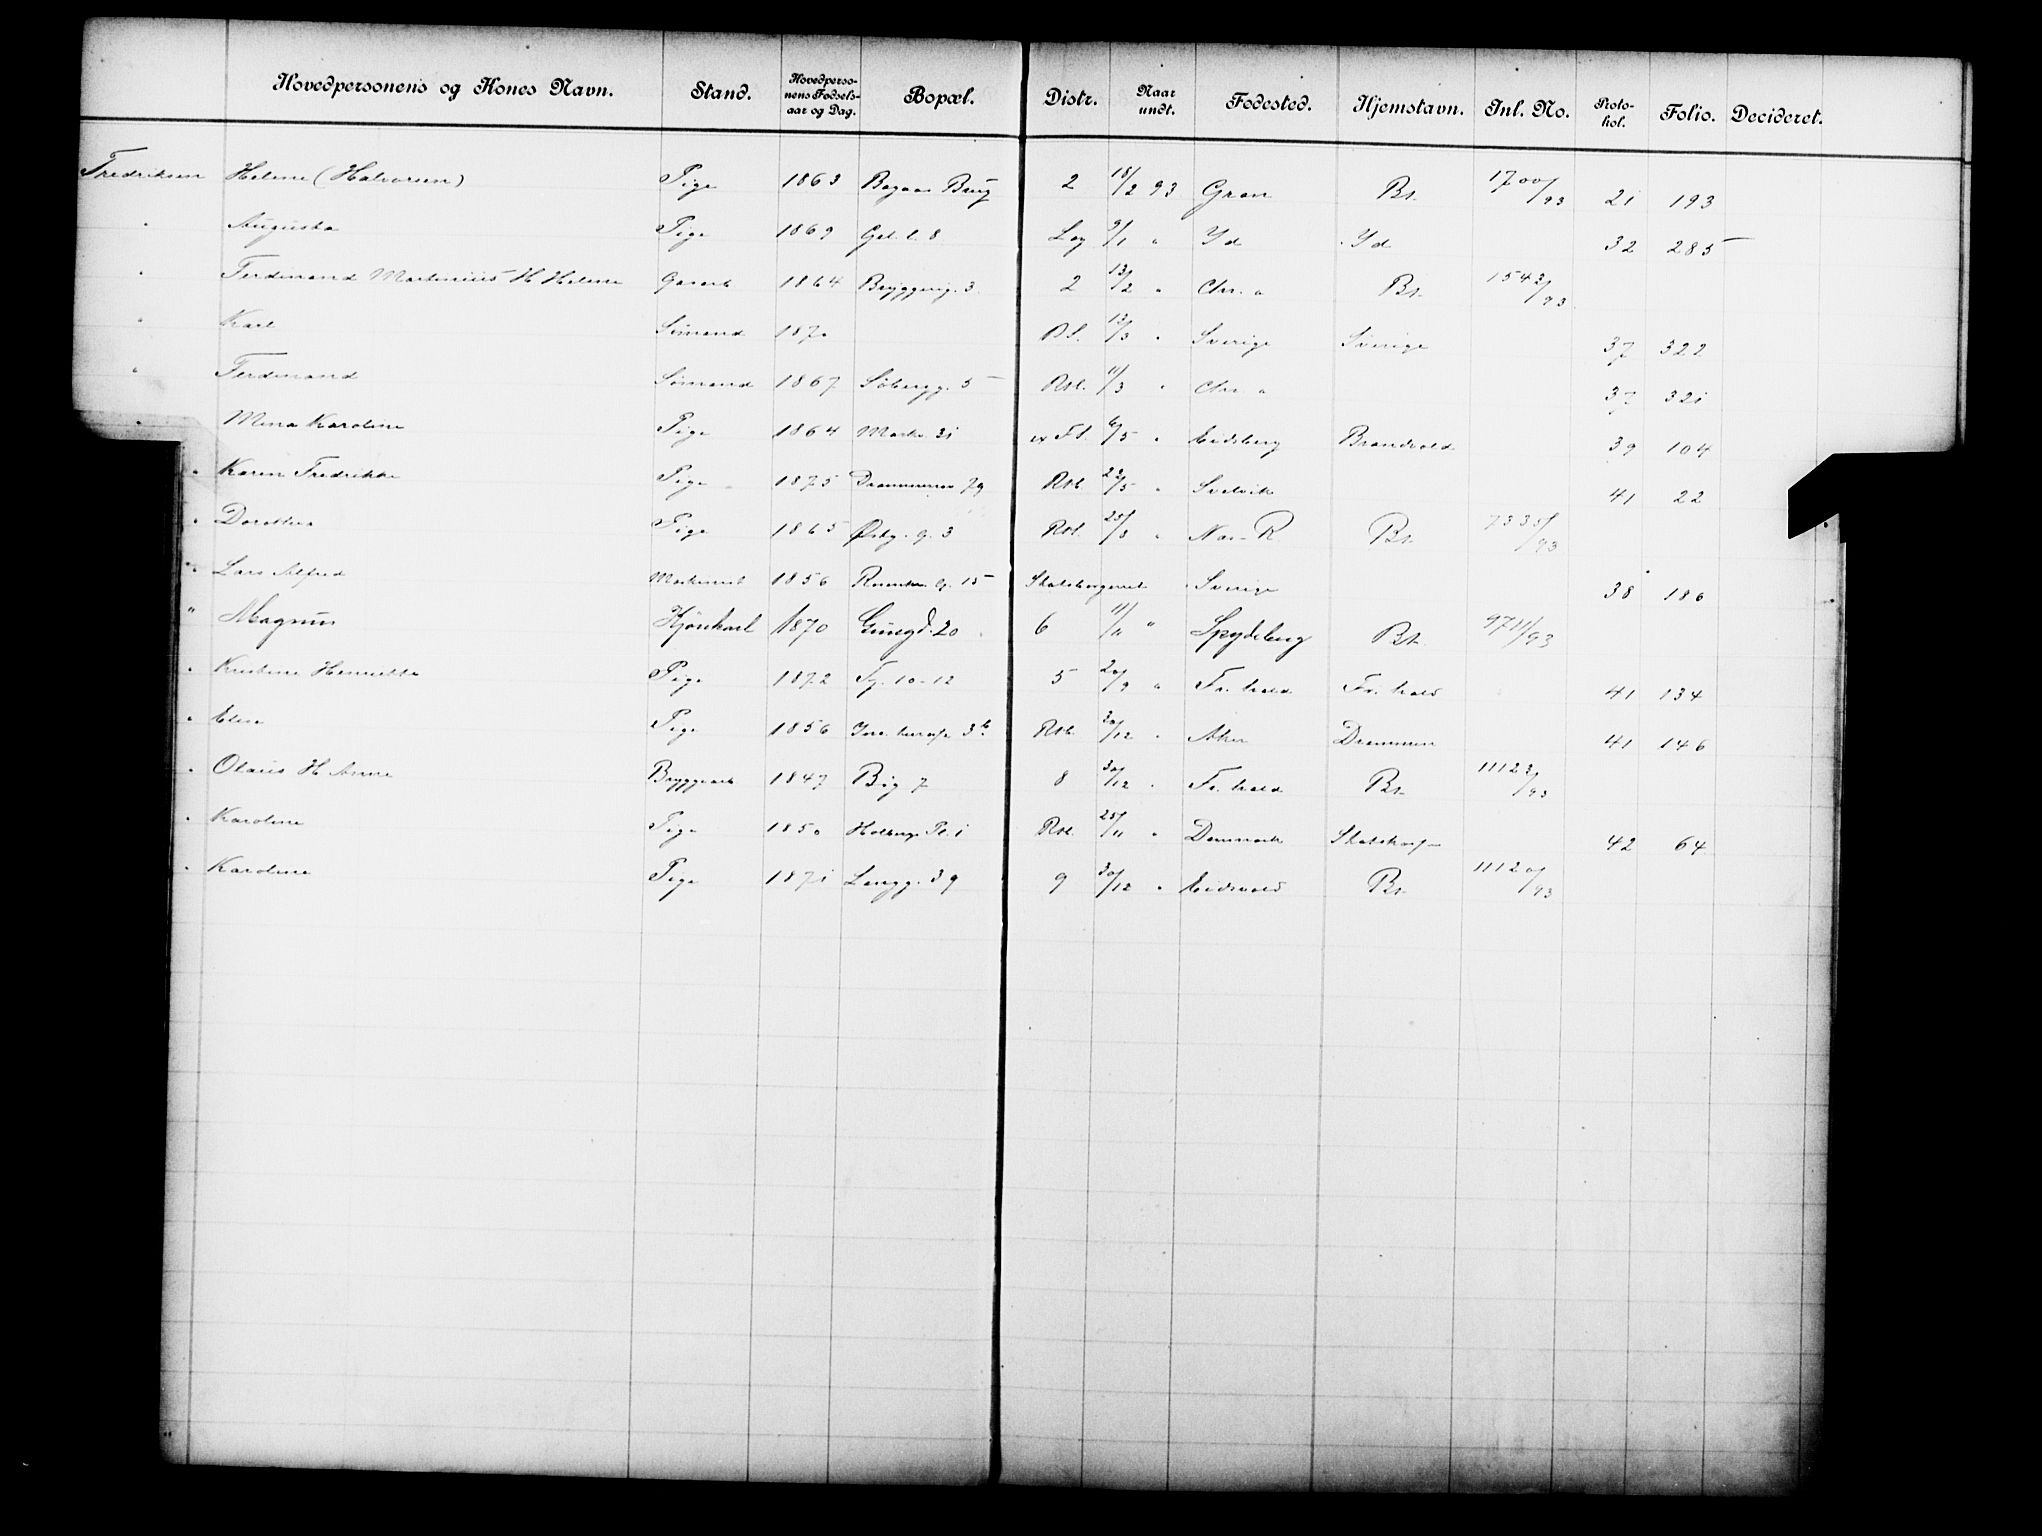 Hovedpersonens og Kones Navn. Stand. Hovedpersonens Fødselsaar og Dag. Bopæl. Distr. Naar undt. Fødested. Hjemstavn. Inl. No. Protokol. Folio. Decideret.
Fredriksen Helene (Halvorsen) Pige 1863 Brug 2 18/2 93 Gran Bt. 1700/93 21 193
" Augusta Pige 1869 8 9/1 " Id Id 32 285
" Ferdinand Martinius H Helene Garart 1864 Bryggerig. 3 2 13/2 " Chr. a Bt. 1542/93
" Karl Sømand 1870 13/3 " Sverige Sverige 37 322
" Ferdinand Sømand 1867 5 Rst. 11/3 " Chr. a 37 321
" Mina Karoline Pige 1864 Markv. 31 6/5 " Eidsberg Brandvold 39 104
" Karen Fredrikke Pige 1875 79 Rst. 22/5 " Svelvik 41 22
" Dorothea Pige 1865 3 Rst. 25/8 " Bt. 7335/93
" Lars Alfred 1856 15 Sverige 38 186
" Magnus Kjørekarl 1870 20 6 11/11 " Spydeberg Bt. 9711/93
" Kristine Henriette Pige 1872 10-12 5 20/9 " Fr. hald Fr. hald 41 134
" Elise Pige 1856 3b Rst. 30/12 " Aker Drammen 41 146
" Olaus H Anne Bryggeart 1847 7 8 30/12 " Fr. hald Bt. 11123/93
" Karoline Pige 1850 Holbergs Pl. 1 Rst. 25/11 " Danmark 42 64
" Karoline Pige 1871 Langg. 39 9 30/12 " Eidsvold Bt. 11120/93